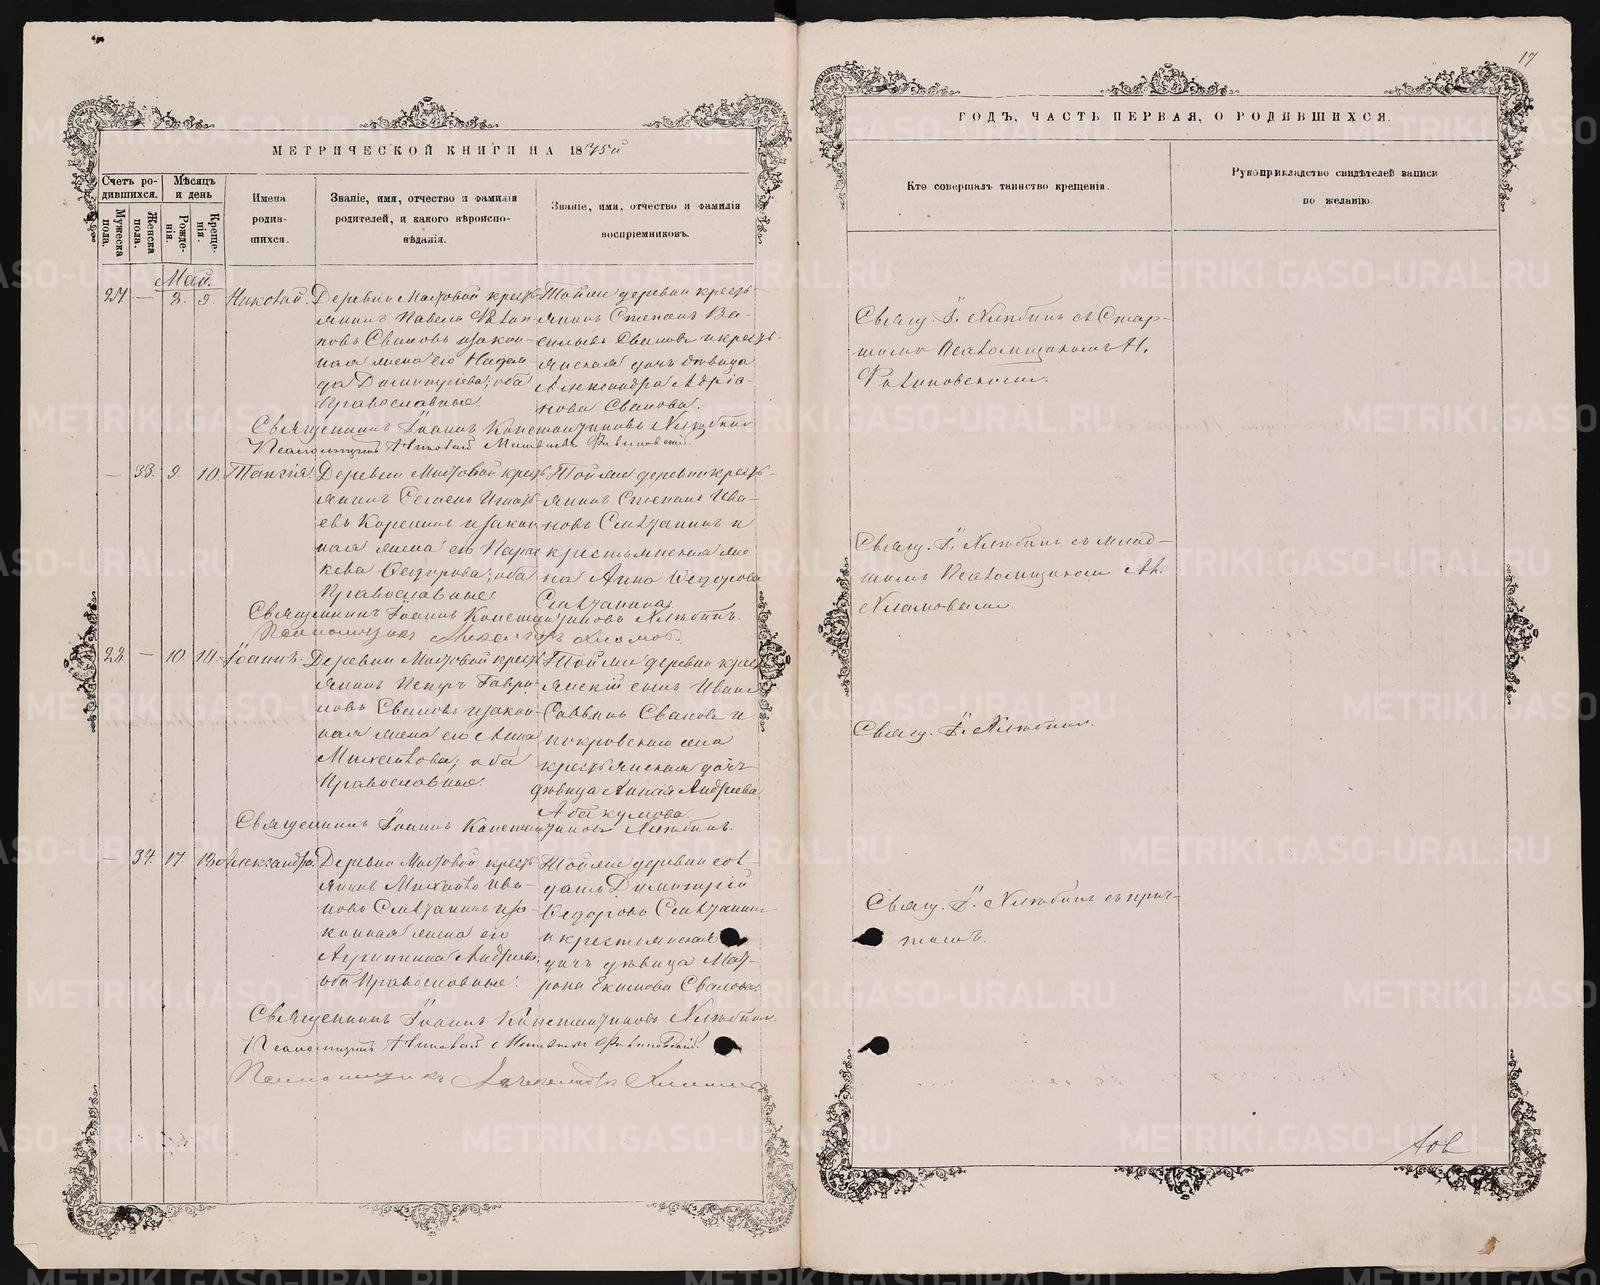 МЕТРИЧЕСКОЙ КНИГИ НА 1875й
Счетъ ро-
дившихся.
Мѣсяцъ
и день
Мужеска
пола.
Женска
пола.
Рожде-
нія.
Креще-
нія.
Имена
родив-
шихся.
Званіе, имя, отчество и фамилія
родителей, и какого вѣроиспо-
вѣданія.
Званіе, имя, отчество и фамилія
воспріемниковъ.
Май.
27 — 8. 9.
Николай.
Деревни Мостовой крестъ-
янинъ Павелъ
повъ Сваловъ и закон-
ная жена его Надеж-
да Димитріева; оба
Православные.
Той же деревни кресть-
янинъ Степанъ Ва-
сильевъ Сваловъ и кресть-
янская дочь дѣвица
Александра Адріа-
нова Свалова.
Священникъ Іоаннъ Константиновъ Хлѣбинъ
Псаломщикъ Николай
— 33. 9. 10.
Таисія.
Деревни Мостовой кресть-
янинъ Семенъ Игнать-
евъ Корелинъ и закон-
ная жена его Парас-
кева Ѳедорова; оба
Православные.
Той же деревни кресть-
янинъ Степанъ Ива-
новъ Смѣтанинъ и
крестьянская же-
на Анна Ѳедорова
Смѣтанина.
Священникъ Іоаннъ Константиновъ Хлѣбинъ.
Псаломщикъ Александръ Хламовъ.
28. — 10. 14.
Іоаннъ.
Деревни Мостовой кресть-
янинъ Петръ Гаври-
ловъ Сваловъ и закон-
ная жена его Анна
Михайлова; оба
Православные.
Той же деревни кресть-
янскій сынъ Иванъ
Саввинъ Сваловъ и
покровскаго села
крестьянская дочь
дѣвица Анна Андреева
Абакумова.
Священникъ Іоаннъ Константиновъ Хлѣбинъ.
— 34. 17. 18.
Александра.
Деревни Мостовой кресть-
янинъ Михайло Ива-
новъ Смѣтанинъ и за-
конная жена его
Агриппина Андреева,
оба Православные.
Той же деревни сол-
датъ Димитрій
Ѳедоровъ Смѣтанинъ
и крестьянская
дочь дѣвица Мат-
рона Екимова Свалова.
Священникъ Іоаннъ Константиновъ Хлѣбинъ.
Псаломщикъ Николай
Псаломщикъ Александръ Хламовъ
17
ГОДЪ, ЧАСТЬ ПЕРВАЯ, О РОДИВШИХСЯ.
Кто совершалъ таинство крещенія.
Рукоприкладство свидѣтелей записи
по желанію.
Свящ. І. Хлѣбинъ съ Стар-
шимъ Псаломщикомъ Н.
Свящ. І. Хлѣбинъ съ млад-
шимъ Псаломщикомъ Ал.
Хламовымъ.
Свящ. І. Хлѣбинъ.
Свящ. І. Хлѣбинъ съ прич-
томъ.
METRIKI.GASO-URAL.RU